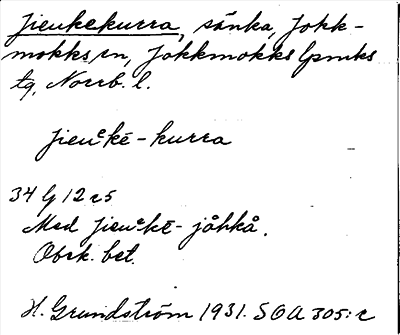 Jieukekurra, sänka, Jokk-
mokks sn, Jokkmokks lpmks
tg, Norrb. l.
Jieuᵉkē-kurra
34 G 12 c5
Med Jieuᵉkē-jåhkå.
Obek. bet.
H. Grundström 1931. SOA 305:2